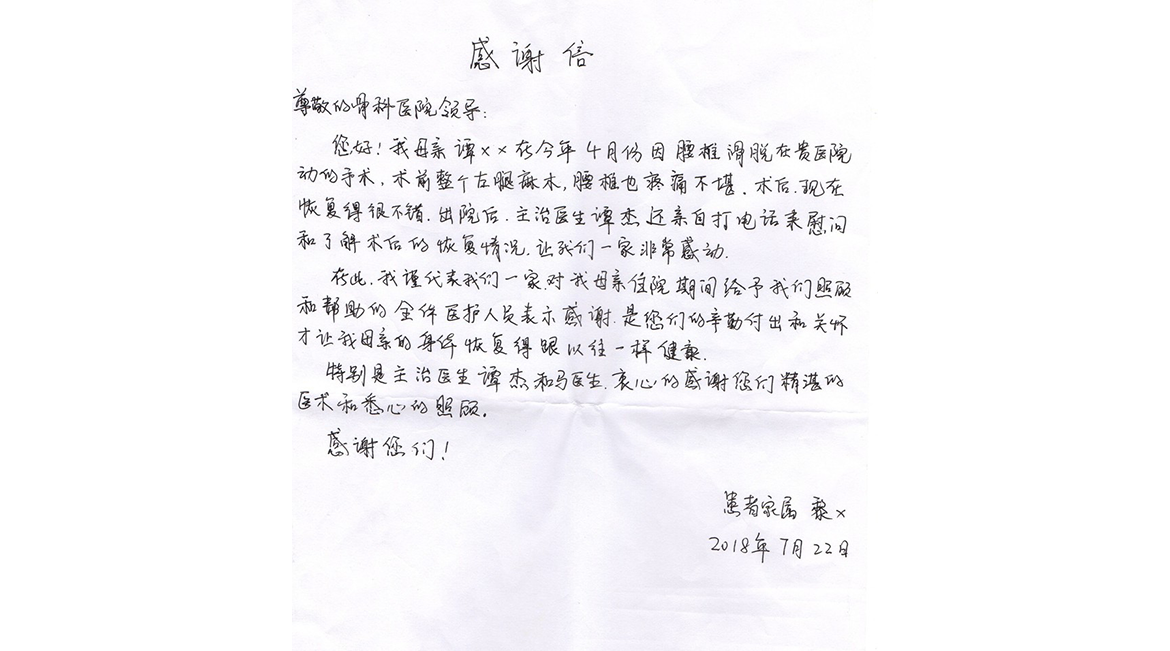 感谢信
尊敬的骨科医院领导:
您好!我母亲谭××在今年4月份因腰椎滑脱在贵医院
动的手术,术前整个左腿麻木,腰椎也疼痛不堪.术后.现在
恢复得很不错.出院后.主治医生谭杰还亲自打电话来慰问
和了解术后的恢复情况.让我们一家非常感动.
在此.我谨代表我们一家对我母亲住院期间给予我们照顾
和帮助的全体医护人员表示感谢.是您们的辛勤付出和关怀
才让我母亲的身体恢复得跟以往一样健康.
特别是主治医生谭杰和马医生.衷心的感谢您们精湛的
医术和悉心的照顾.
感谢您们!
患者家属 黎×
2018年7月22日